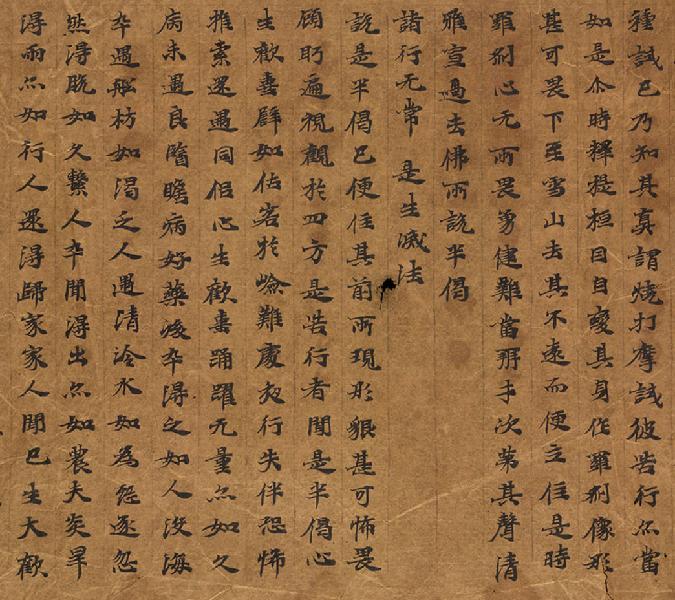 種試已乃知其真謂燒打摩試彼苦行亦當
如是尒時釋提桓因自變其身作羅剎像形
甚可畏下至雪山去其不遠而便立住是時
羅剎心无所畏勇健難當辯才次第其聲清
雅宣過去佛所說半偈
諸行无常 是生滅法
說是半偈已便住其前所現形貌甚可怖畏
顧眄遍視觀於四方是苦行者聞是半偈心
生歡喜辟如估客於嶮難處夜行失伴恐怖
推索還遇同侣心生歡喜踊躍无量亦如久
病未遇良醫瞻病好藥後卒得之如人没海
卒遇船枋如渴乏人遇清冷水如為怨逐忽
然得脫如久繫人卒聞得出亦如農夫炎旱
得雨亦如行人還得歸家家人聞已生大歡